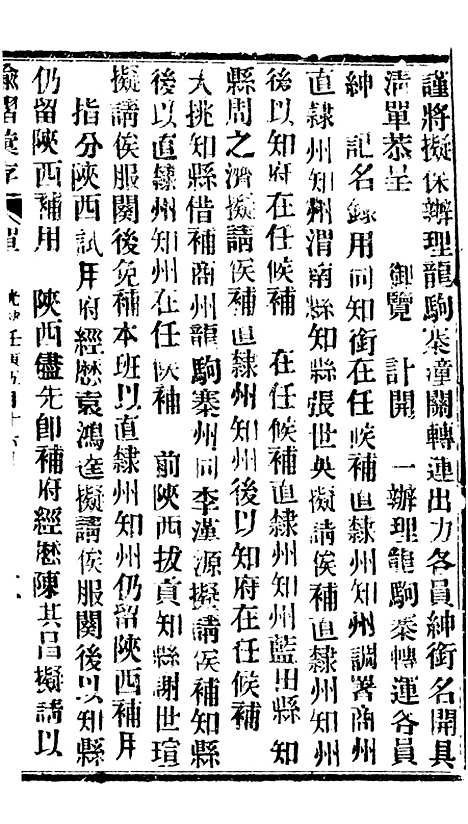 謹將擬保辦理龍駒寨潼關轉運出力各員紳銜名開具
清單恭呈　御覽　計開　一辦理龍駒寨轉運各員
紳　記名錄用同知銜在任候補直隸州知州調署商州
直隸州知州渭南縣知縣張世英擬請俟補直隸州知州
後以知府在任候補　在任候補直隸州知州藍田縣知
縣周之濟擬請俟補直隸州知州後以知府在任候補
大挑知縣借補商州龍駒寨州同李漢源擬請俟補知縣
後以直隸州知州在任候補　前陝西拔貢知縣謝世瑄
擬請俟服闋後免補本班以直隸州知州仍留陝西補用
指分陝西試用府經歷袁鴻逵擬請俟服闋後以知縣
仍留陝西補用　陝西儘先卽補府經歷陳其昌擬請以
諭摺彙存